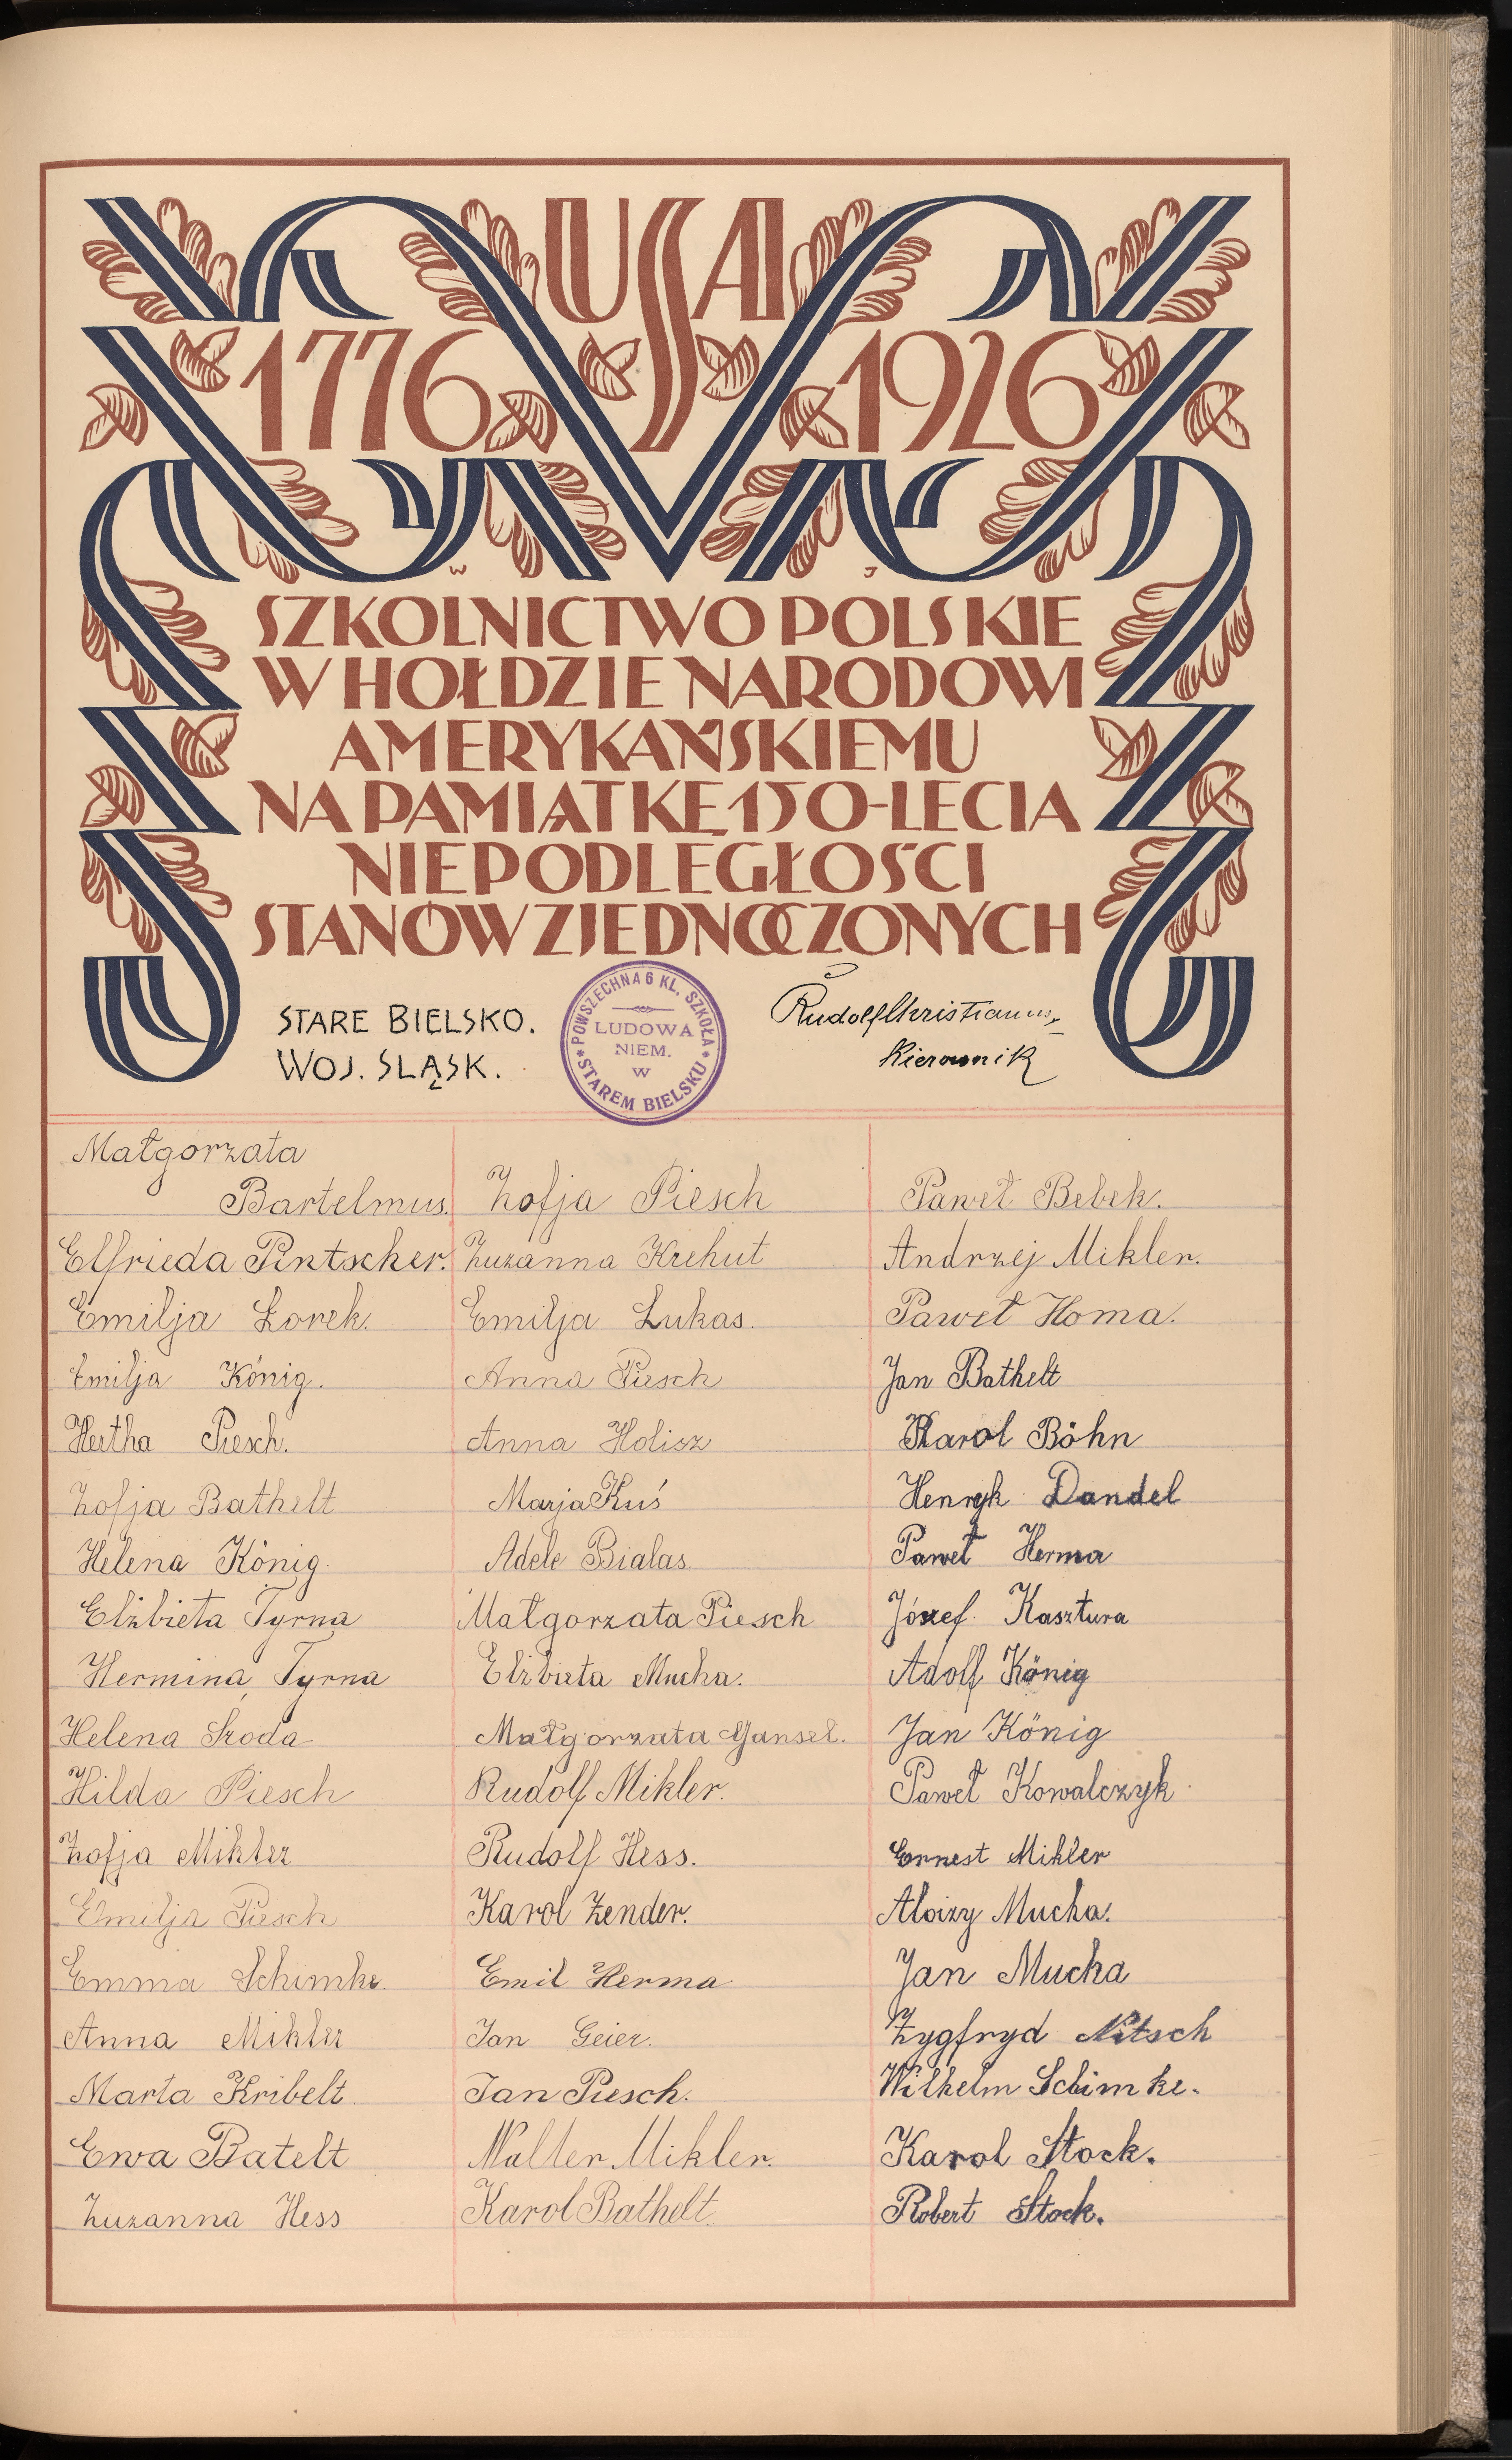 USA
1776 1926
W J
SZKOLNICTWO POLSKIE
W HOŁDZIE NARODOWI
AMERYKAŃSKIEMU
NA PAMIĄTKĘ 150-LECIA
NIEPODLEGŁOŚCI
STANÓW ZJEDNOCZONYCH
STARE BIELSKO.
WOJ. ŚLĄSK.
POWSZECHNA 6 KL. SZKOŁA
LUDOWA
NIEM.
W
* STAREM BIELSKU *
Rudolf Christianus
Kierownik
Małgorzata
Bartelmus.
Elfrieda Pintscher.
Emilja Żorek.
Emilja König.
Hertha Piesch.
Zofja Bathelt
Helena König.
Elżbieta Tyrna
Hermina Tyrna
Helena Sroda
Hilda Piesch
Zofja Mikler
Emilja Piesch
Emma Schimke.
Anna Mikler
Marta Kribelt.
Ewa Batelt
Zuzanna Hess
Zofja Piesch
Zuzanna Krehut
Emilja Lukas.
Anna Piesch
Anna Holisz
Marja Kuś
Adele Bialas
Małgorzata Piesch
Elżbieta Mucha.
Małgorzata Gansel.
Rudolf Mikler.
Rudolf Hess.
Karol Zender.
Emil Herma
Jan Geier.
Jan Piesch.
Walter Mikler.
Karol Bathelt.
Paweł Bebek.
Andrzej Mikler.
Paweł Homa.
Jan Bathelt
Karol Böhn
Henryk Dandel
Paweł Herma
Józef Kasztura
Adolf König
Jan König
Paweł Kowalczyk
Ernest Mikler
Aloizy Mucha.
Jan Mucha
Zygfryd Nitsch
Wilhelm Schimke.
Karol Stock.
Robert Stock.